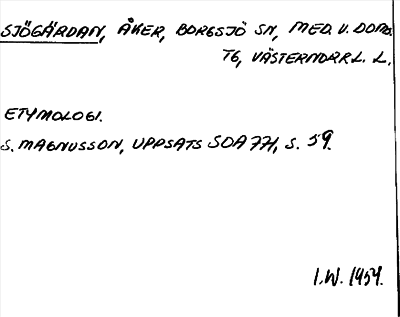 SJÖGÄRDAN, ÅKER, BORGSJÖ SN, MED. V. DOMS.
TG, VÄSTERNORRL. L.
ETYMOLOGI.
S. MAGNUSSON, UPPSATS SOA 771, S. 59.
I.W. 1959.